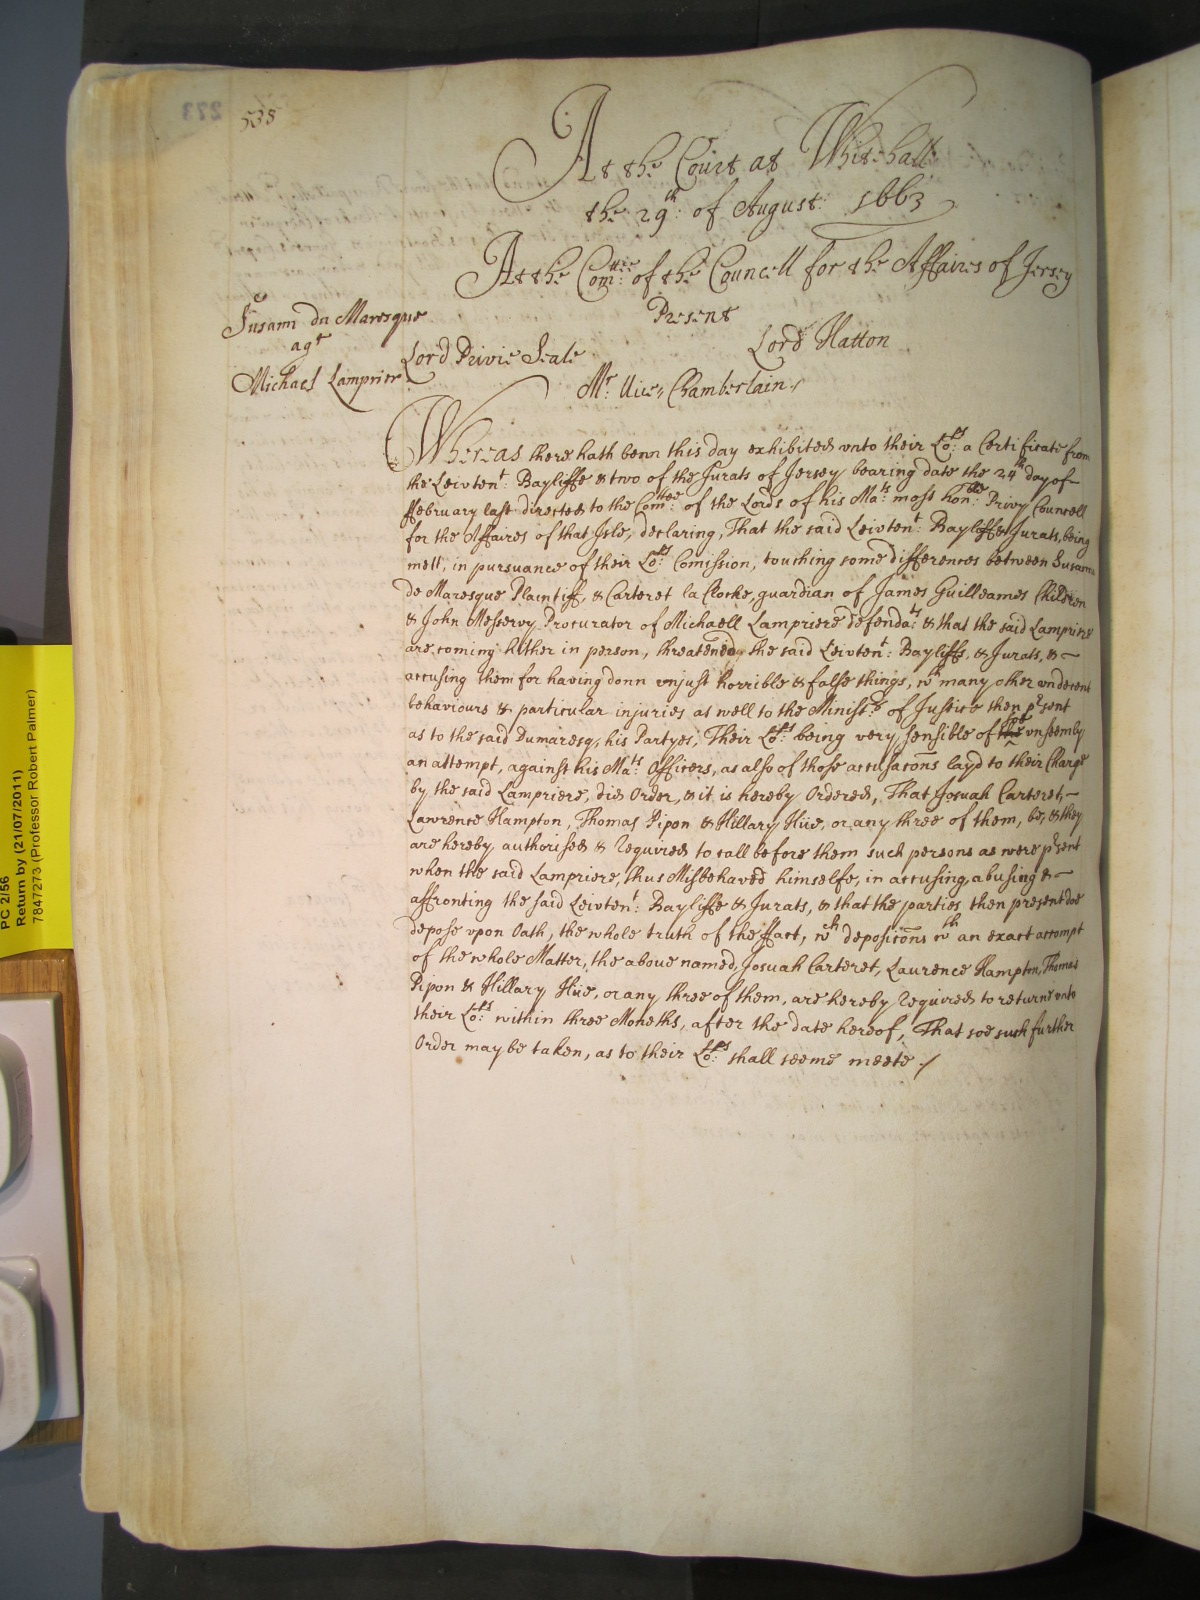 538
273
At the Court at Whitehall
the 29th: of August: 1663
At the Comttee: of the Councell for the Affaires of Jersey
Present
Susann du Maresque
agt
Michael Lampriere
Lord Privie Seale
Lord Hatton
Mr: Vice, Chamberlain,
Whereas there hath benn this day exhibited vnto their Lopps: a Certificate from
the Leivtent: Bayliffe & two of the Jurats of Jersey bearing date the 24th day of
ffebruary last directed to the Comttee: of the Lords of his Mats: most honble: Privy Councell
for the Affaires of that Isle, declaring, That the said Leivtent: Bayliffe & Jurats, being
mett, in pursuance of their Lopps: Comission, touching some differences between Susann
de Maresque Plaintiff, & Carteret la Cloche, guardian of James Guilleames Children
& John Messervy Procurator of Michaell Lampriere defendats: & that the said Lampriere
are coming hither in person, threatened the said Leivtent: Bayliffe, & Jurats, &
accusing them for having donn vnjust horrible & false things, wth many other vndecent
behaviours & particular injuries as well to the Ministrs: of Justice then prsent
as to the said Dumaresq, his Partyes, Their Lopps: being very sensible of soe vnseemly
an attempt, against his Mats: Officers, as also of those accusacons layd to their Charge
by the said Lampriere, did Order, & it is hereby Ordered, That Josuah Carteret,
Lawrence Hampton, Thomas Pipon & Hillary Hüe, or any three of them, be, & they
are hereby authorised & Required to call before them such persons as were prsent
when the said Lampriere, thus Misbehaved himselfe, in accusing, abusing &
affronting the said Leivtent: Bayliffe & Jurats, & that the parties then present doe
depose vpon Oath, the whole truth of the ffact, wch depositons wth an exact accompt
of the whole Matter, the aboue named, Josuah Carteret, Laurence Hampton, Thomas
Pipon & Hillary Hüe, or any three of them, are hereby Required to returne vnto
their Lopps: within three Moneths, after the date hereof, That soe such further
Order may be taken, as to their Lopps: shall seeme meete
PC 2/56
Return by (21/07/2011)
7847273 (Professor Robert Palmer)